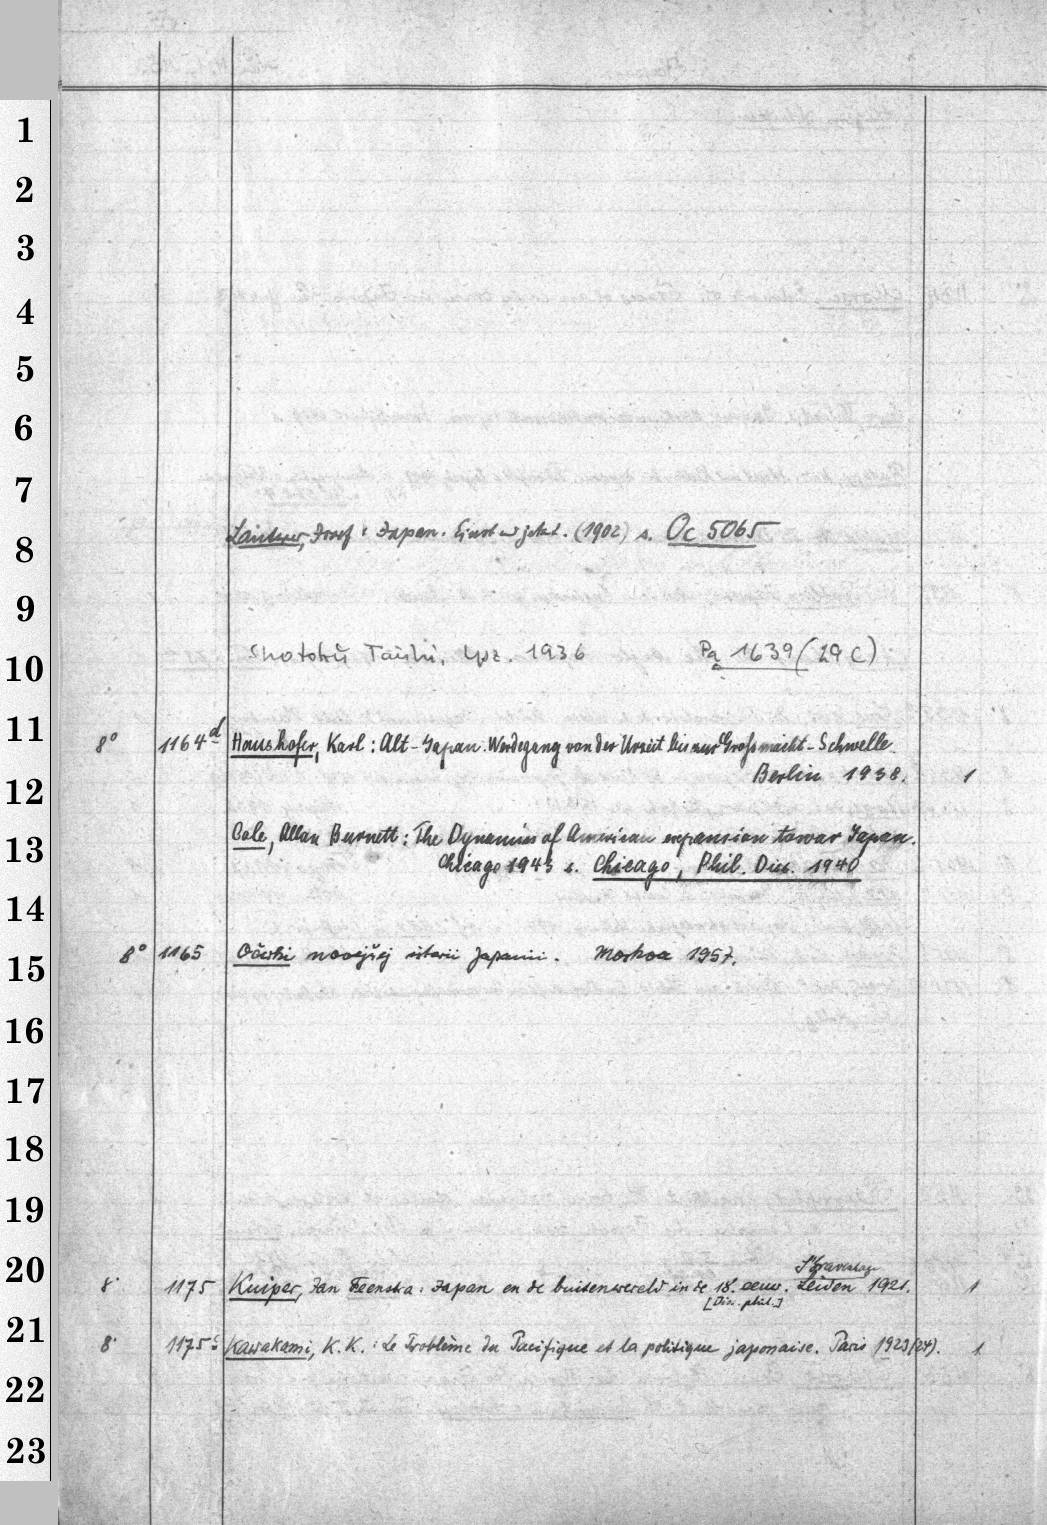 1
2
3
4
5
6
7
8
Lauterer, Josef: Japan. Einst u. jetzt. (1902) s. Oc 5065
9
10
Shotoku Taishi, Lpz. 1936 Pq 1639 (29 C)
11
8° 1164d Haushofer, Karl: Alt-Japan. Werdegang von der Urzeit bis zur Großmacht-Schwelle.
12
Berlin 1938. 1
13
Cole, Allan Burnett: The Dynamics of American expansion towar Japan.
Chicago 1943 s. Chicago, Phil. Diss. 1940
14
15
8° 1165 Očerki novejšej istorii Japonii. Moskva 1957.
16
17
18
19
20
8° 1175 Kuiper, Jan Feenstra: Japan en de buitenwereld in de 18. eeuw. Leiden 1921. 1
S'Gravenhage
[Diss. phil.]
21
8° 1175c Kawakami, K.K.: Le Problème du Pacifique et la politique japonaise. Paris 1923(24). 1
22
23